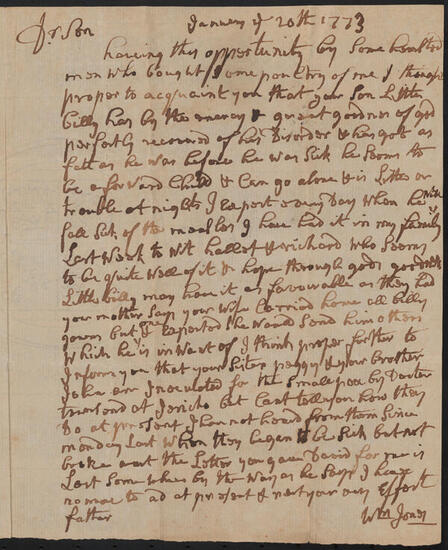 January ye 20th 1773
Dr Son
having this opportunity by Some
men who bought Some poultry of me I thought
proper to acquaint you that your Son Little
billy has by the mercy & great goodness of god
perfectly recovered of his Disorder & has got as
fatt as he was before he was Sick he Seems to
be a forward Child & Can go alone & is Litle or
trouble at nights I Expect every Day When he will
fall Sick of the measles I have had it in my family
Last Week to Wit hallet & richard Who Seems
to be quite Well of it & hope through gods goodness
Little billy may have it as favourable as they had
your mother Says your Wife Carried home all billy
gowns but I Expected he Would Send him others
Which he is in Want of I think proper further to
Inform you that your Sister peggy & your brother
John are Inoculated for the Smallpox by Docter
at Jericho but Cant tell you how they
Do at present I have not heard from them Since
monday Last When they began to be Sick but not
broke out the Letter you gave David for me is
Lost Some where by the Way as he Says I have
no more to ad at present & rest your ever Effect
father
Wm Jones